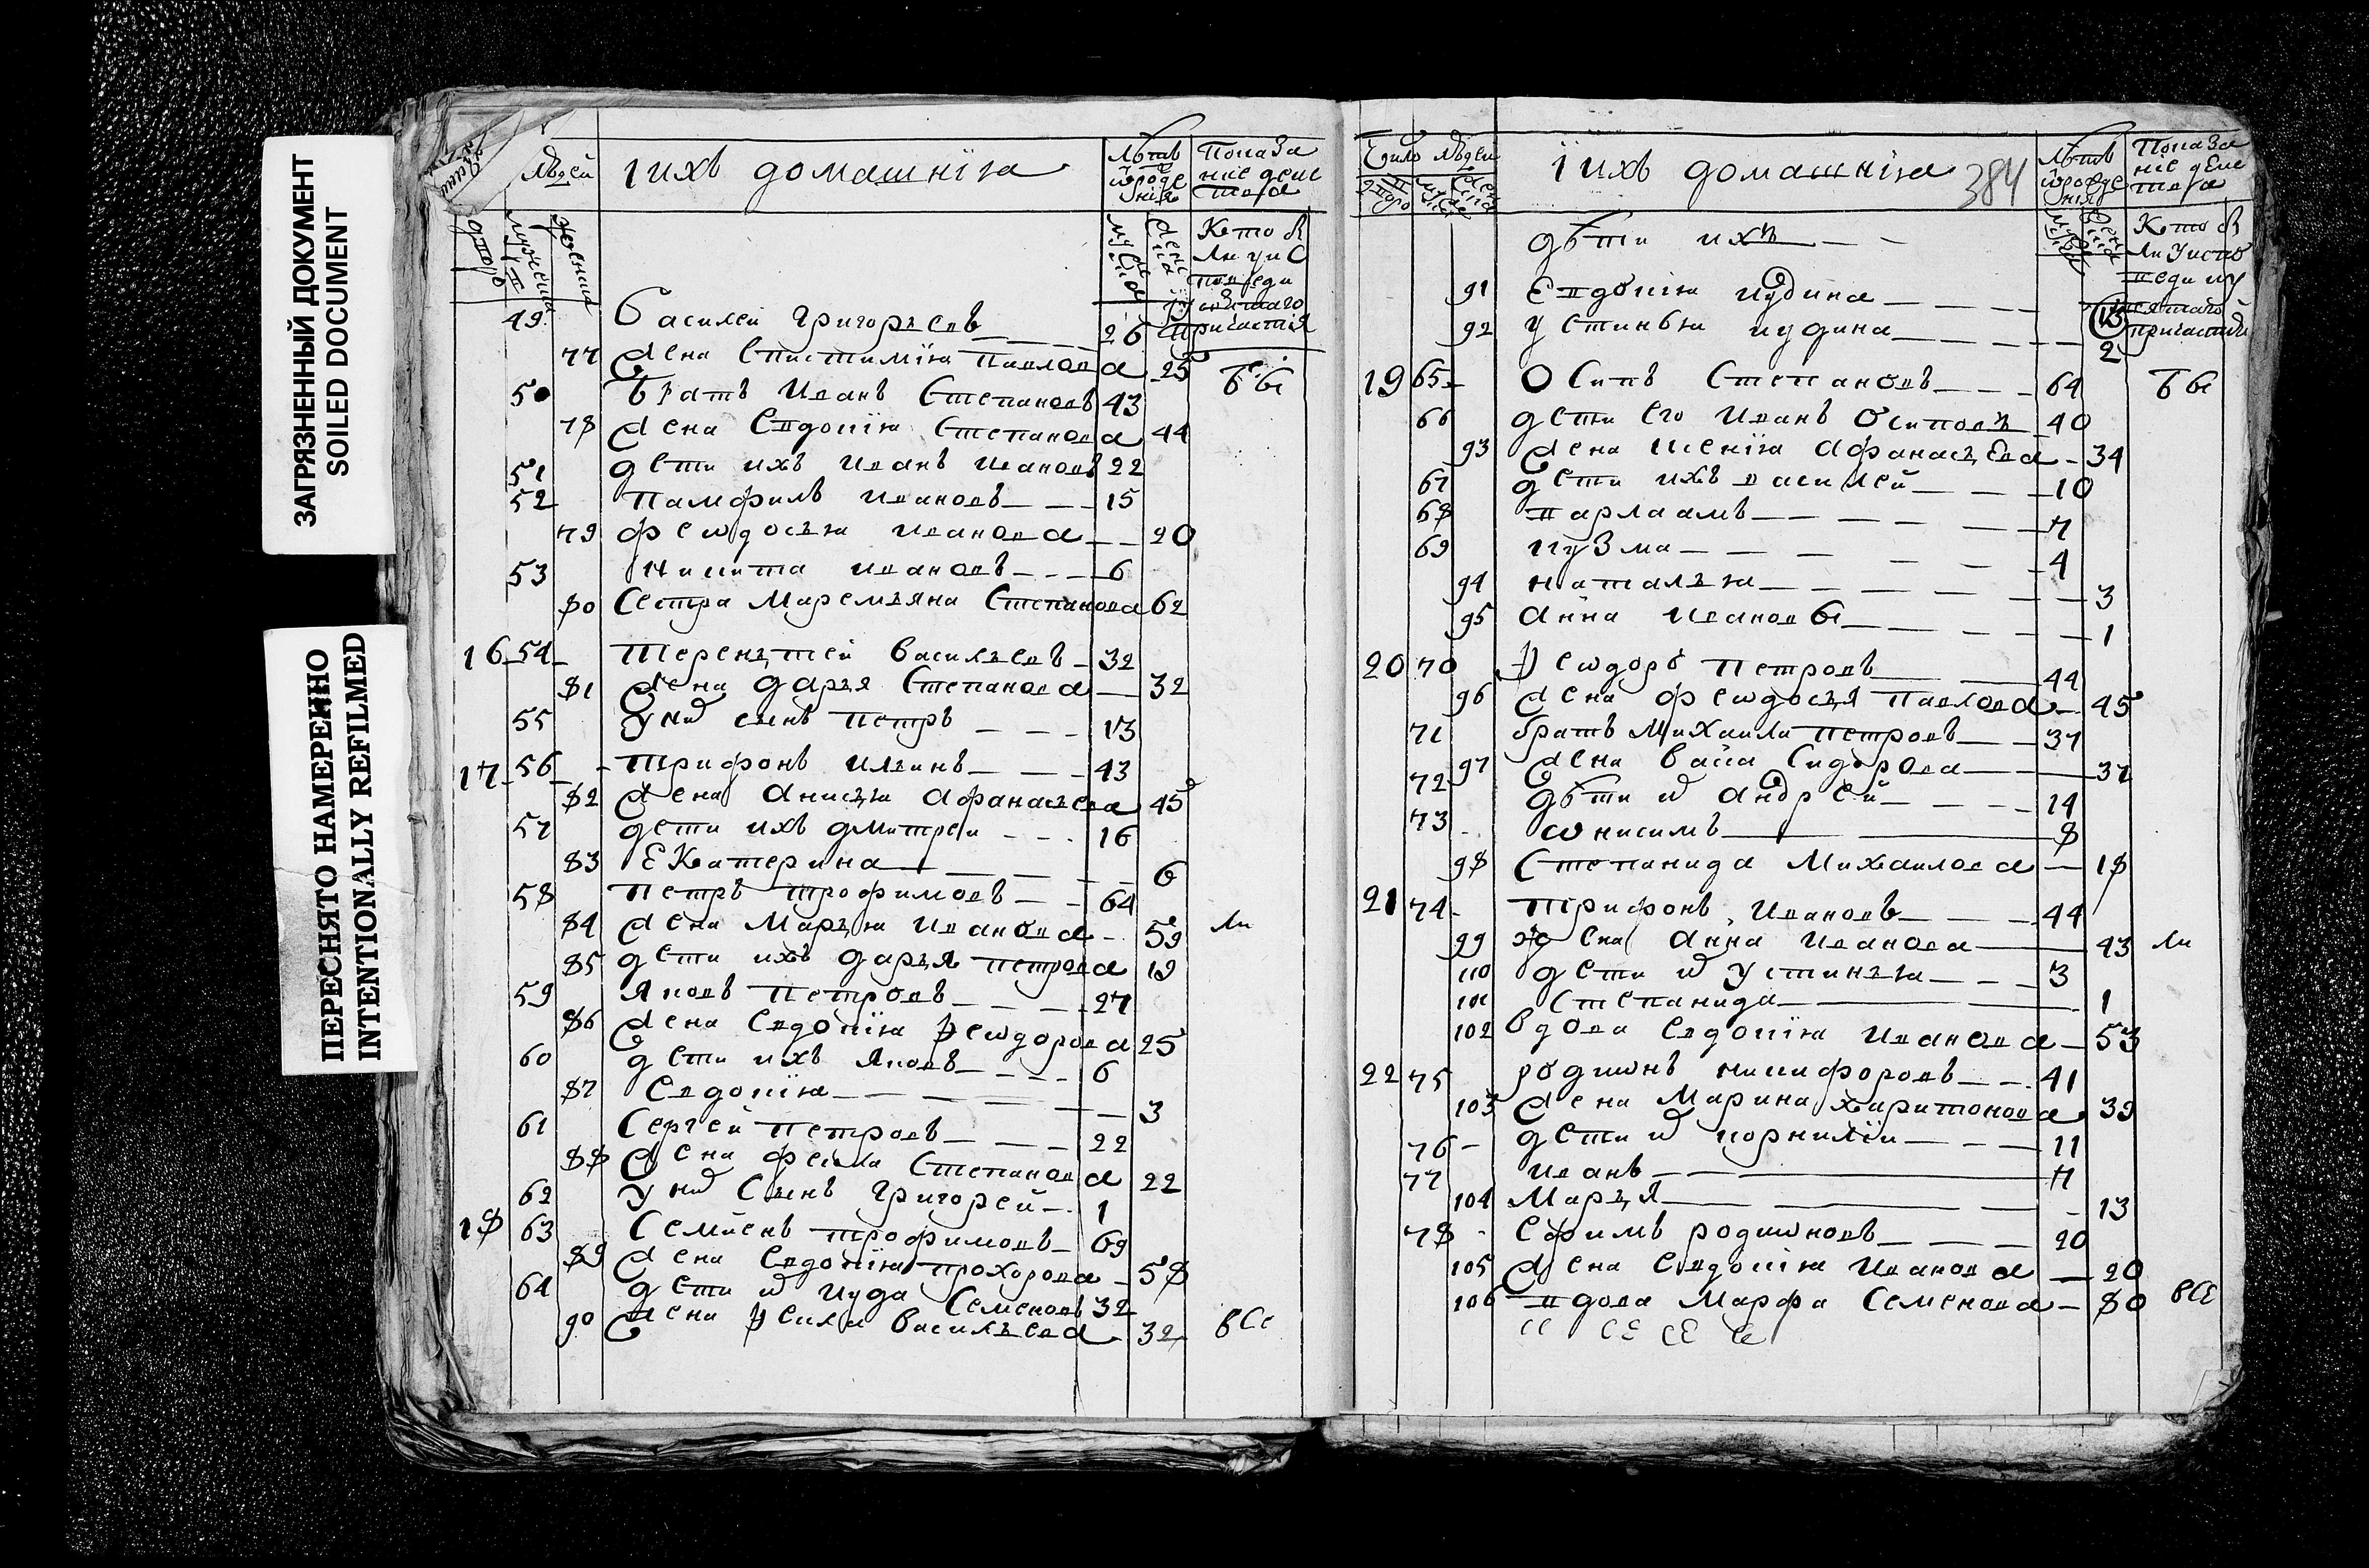 ЗАГРЯЗНЕННЫЙ ДОКУМЕНТ
SOILED DOCUMENT
ПЕРЕСНЯТО НАМЕРЕННО
INTENTIONALLY REFILMED
людей іихъ домашнія
49 Василей Григорьевъ 26
77 жена Епистимїя Павлова 25
50 братъ Иванъ Степановъ 43 бы
78 жена Евдокїя Степанова 44
51 дети ихъ Иванъ Ивановъ 22
52 Памфилъ Ивановъ 15
79 Феѡдосья Иванова 20
53 Никита Ивановъ 6
80 Сестра Маремьяна Степанова 62
16 54 Терентей Васильевъ 32
81 жена Дарья Степанова 32
55 У нихъ сынъ Петръ 13
17 56 Трифонъ Ильинъ 43
82 жена Анисья Афанасьева 45
57 дети ихъ Дмитреи 16
83 Екатерина 6
58 Петръ Трофимовъ 64
84 жена Марья Иванова 59 ли
85 дети ихъ Дарья Петрова 19
59 Яковъ Петровъ 27
86 жена Евдокїя Феѡдорова 25
60 дети ихъ Яковъ 6
87 Евдокїя 3
61 Сергей Петровъ 22
88 жена Фекла Степанова 22
62 У нихъ Сынъ Григорей 1
18 63 Семиенъ Трофимовъ 69
89 жена Евдокїя Прохорова 58
64 дети ихъ Иуда Семеновъ 32
90 жена Васильева 32 все
Число людей їихъ домашнїя 384
дѣти ихъ
91 Евдокїя Иудина 13
92 Устинья Иудина 2
19 65 Осипъ Степановъ 64 бы
66 дети его Иванъ Осиповъ 40
93 жена Ксенїя Афанасьева 34
67 дети ихъ Василей 10
68 Варлаамъ 7
69 Кузма 4
94 Наталья 3
95 Анна Ивановы 1
20 70 Феѡдоръ Петровъ 44
96 жена Феѡдосья Павлова 45
71 братъ Михаила Петровъ 37
97 жена Васа Сидорова 37
72 дѣти ихъ Андрей 14
73 Ѡнисимъ 8
98 Степанида Михаилова 18
21 74 Трифонъ Ивановъ 44
99 жена Анна Иванова 43 ли
110 дети ихъ Устинья 3
101 Степанида 1
102 вдова Евдокїя Иванова 53
22 75 Родиѡнъ Никифоровъ 41
103 жена Марина Харитонова 39
76 дети ихъ Корнилїи 11
77 Иванъ 7
104 Марья 13
78 Ефимъ Родиѡновъ 20
105 жена Евдокїя Иванова 20
106 вдова Марфа Семенова 80 все